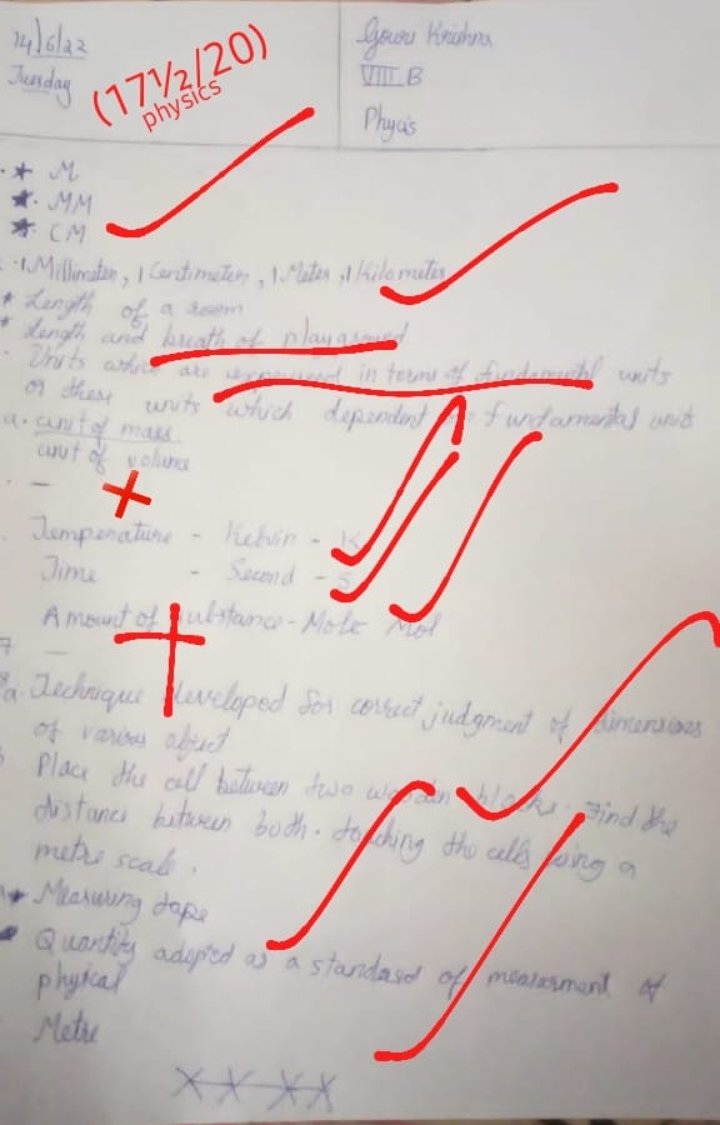 14/6/22
Tuesday
(17½/20)
physics
Gouri Krishna
VIII B
Phycis
* M
* MM
* CM
1 Millimeter, 1 Centimeter, 1 Meter, 1 Kilometer
* Length of a room
* Length and breath of playground
Units which are expressed in terms of fundamental units
or these units which dependent fundamental units
a. unit of mass
unit of volume
-
Temperature - Kelvin - K
Time - Second - S
Amount of substance - Mole Mol
7 -
8a. Technique developed for correct judgment of dimensions
of various object
Place the cell between two wooden blocks. Find the
distance between both. touching the cells using a
metre scale.
* Measuring tape
Quantity adopted as a standard of measurment of
physical
Metre